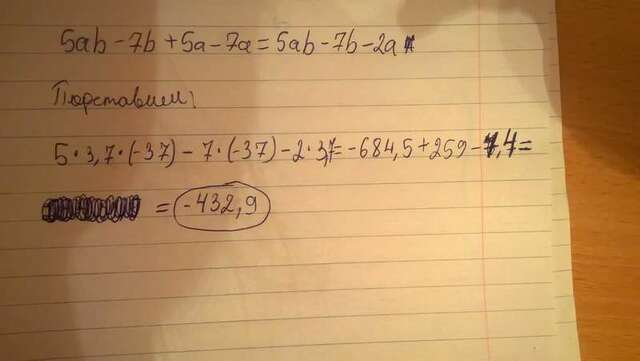 5ab - 7b + 5a - 7a = 5ab - 7b - 2a
Подставим:
5 · 3,7 · (-37) - 7 · (-37) - 2 · 3,7 = -684,5 + 259 - 7,4 =
= -432,9